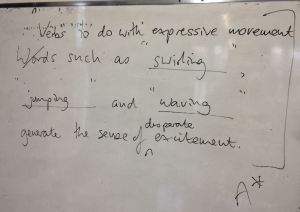 Verbs to do with expressive movement
Words such as "swirling",
"jumping" and "waving"
generate the sense of desparate excitement.
A*